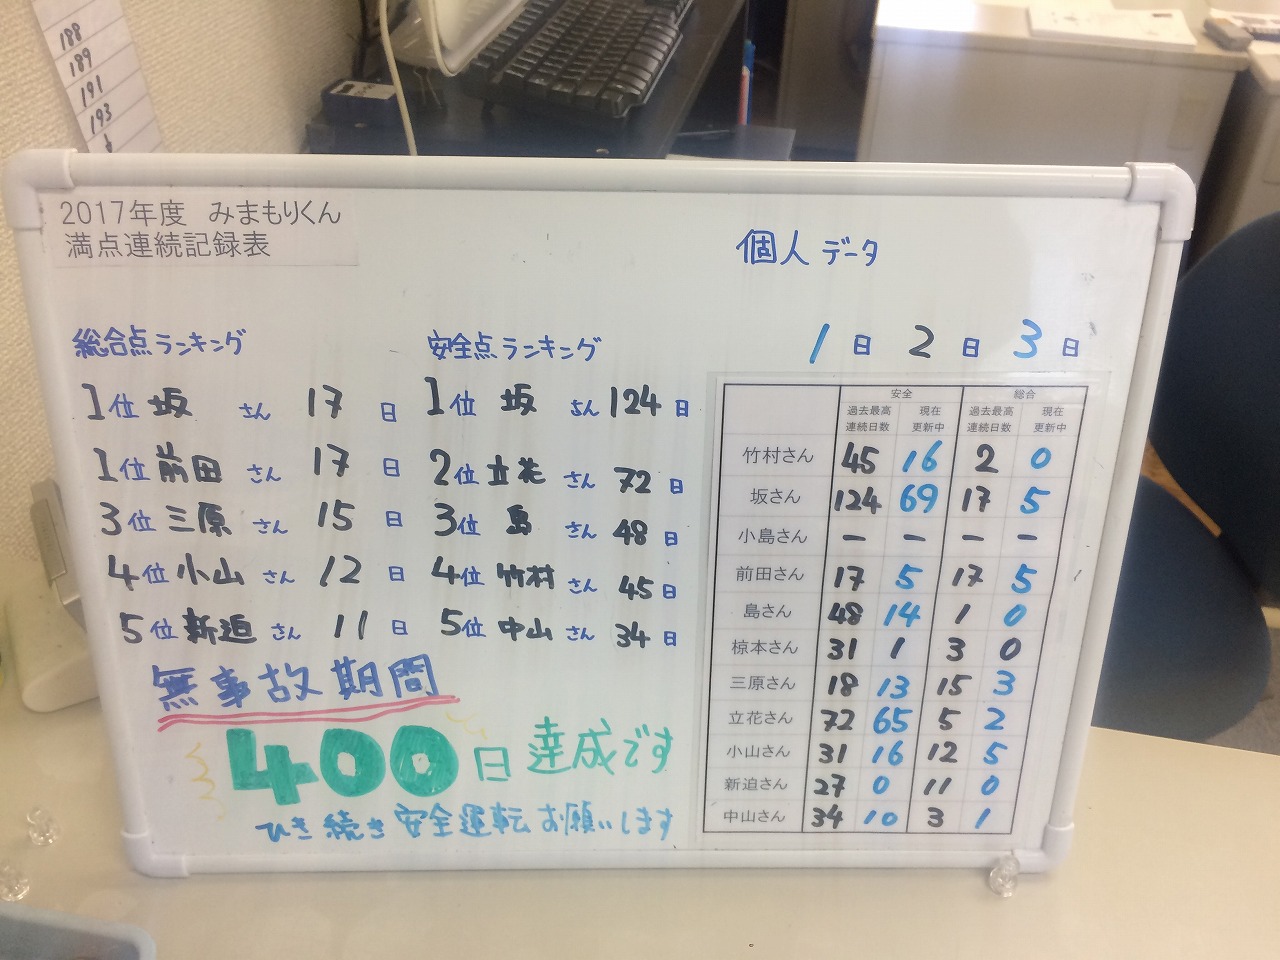 188
189
191
193
2017年度 みまもりくん
満点連続記録表
個人データ
1日 2日 3日
総合点ランキング
1位 坂 さん 17日
1位 前田 さん 17日
3位 三原 さん 15日
4位 小山 さん 12日
5位 新迫 さん 11日
安全点ランキング
1位 坂 さん 124日
2位 立花 さん 72日
3位 島 さん 48日
4位 竹村 さん 45日
5位 中山 さん 34日
無事故期間
400日 達成です
ひき続き 安全運転 お願いします
安全 総合
過去最高 現在 過去最高 現在
連続日数 更新中 連続日数 更新中
竹村さん 45 16 2 0
坂さん 124 69 17 5
小島さん ー ー ー ー
前田さん 17 5 17 5
島さん 48 14 1 0
椋本さん 31 1 3 0
三原さん 18 13 15 3
立花さん 72 65 5 2
小山さん 31 16 12 5
新迫さん 27 0 11 0
中山さん 34 10 3 1